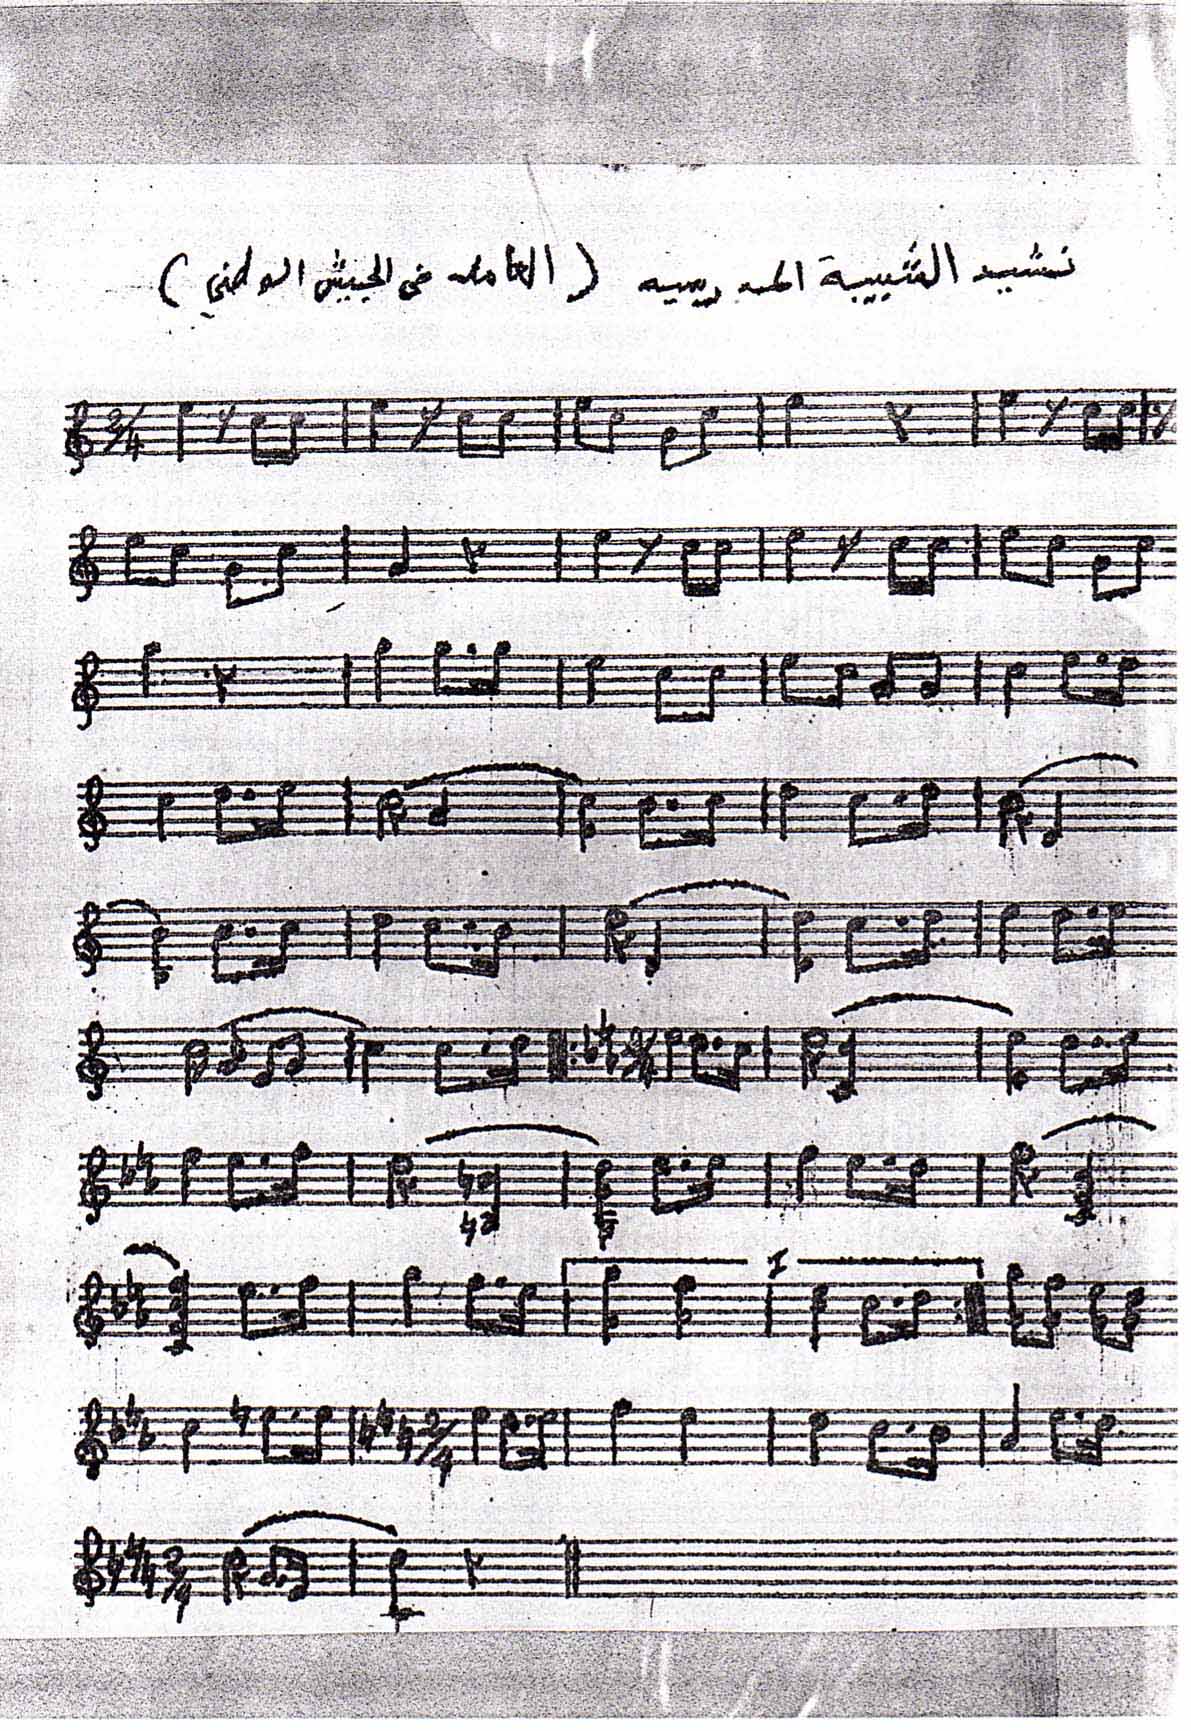 نشيد الشبيبة المدرسيه (العامله في الجيش الوطني)
2/4
1
2/4
2/4